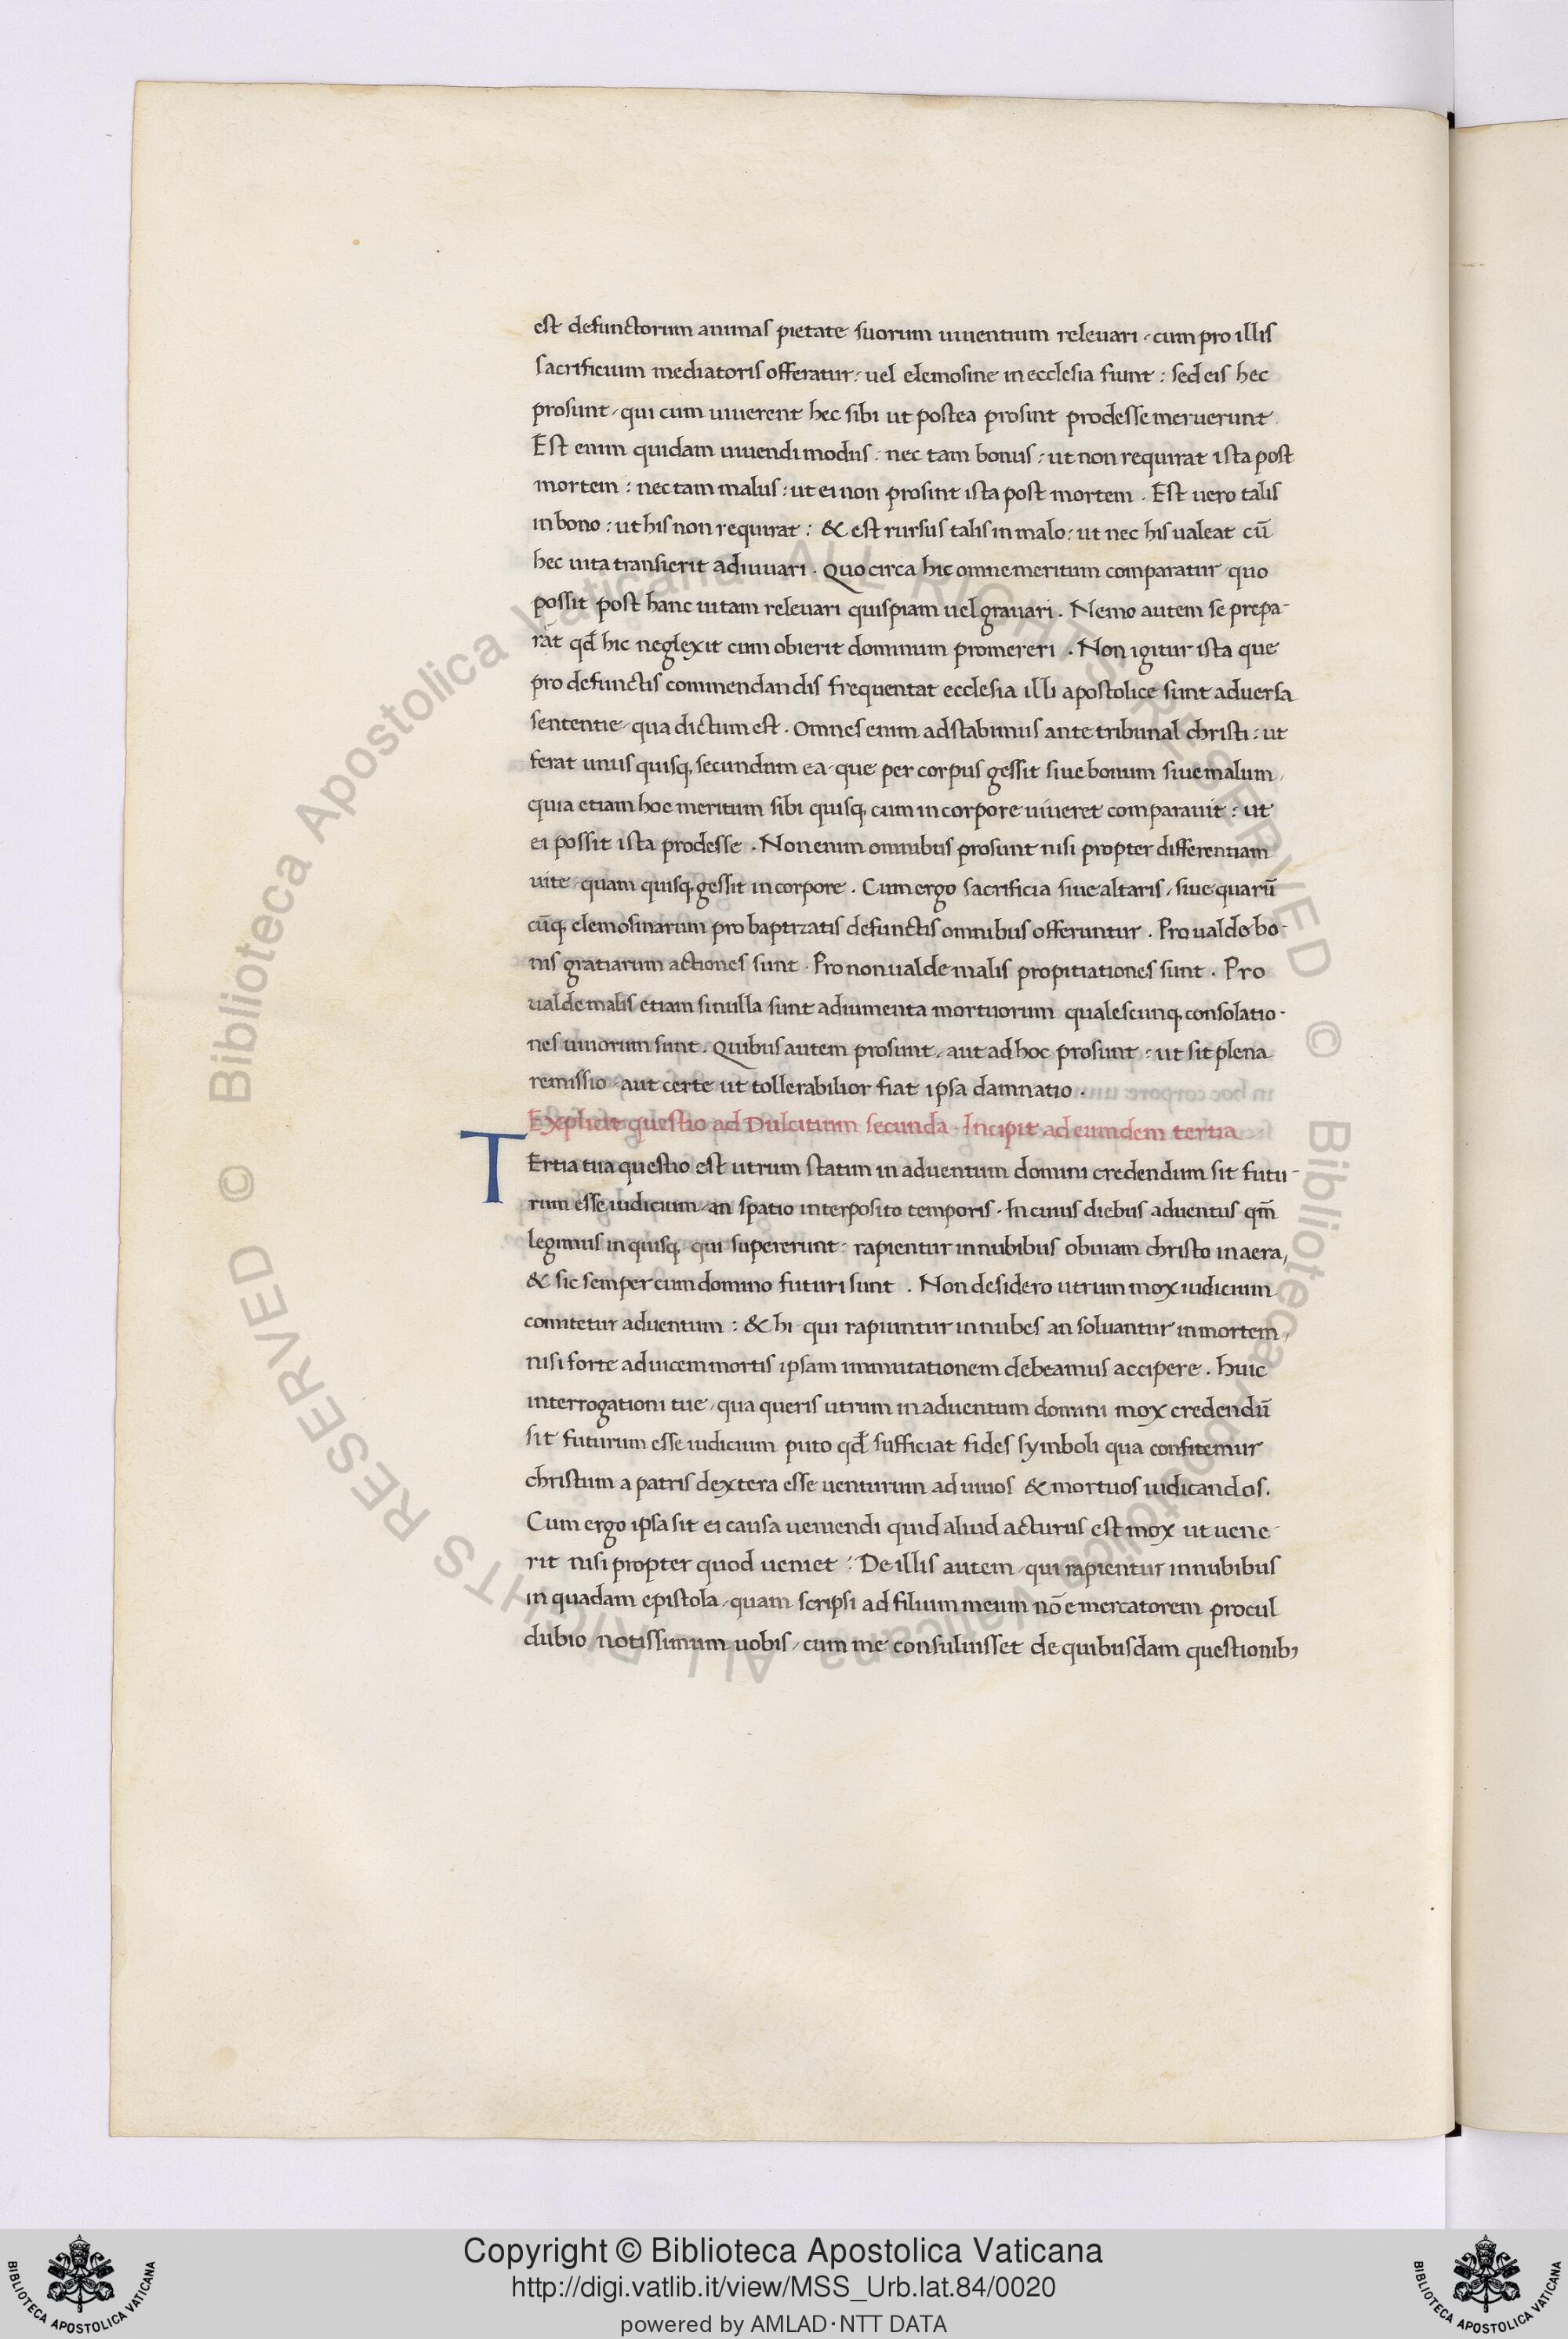 est defunctorum animas pietate suorum uiuentium releuari, cum pro illis
sacrificium mediatoris offeratur: uel elemosine in ecclesia fiunt: sed eis hec
prosunt, qui cum uiuerent hec sibi ut postea prosint prodesse meruerunt.
Est enim quidam uiuendi modus: nec tam bonus: ut non requirat ista post
mortem: nec tam malus: ut ei non prosint ista post mortem. Est uero talis
in bono: ut his non requirat: & est rursus talis in malo: ut nec his ualeat cū
hec uita transierit adiuuari. Quo circa hic omne meritum comparatur quo
possit post hanc uitam releuari quispiam uel grauari. Nemo autem se prepa-
rat qđ hic neglexit cum obierit dominum promereri. Non igitur ista que
pro defunctis commendandis frequentat ecclesia illi apostolice sunt aduersa
sententie, qua dictum est. Omnes enim adstabimus ante tribunal christi: ut
ferat unus quisq; secundum ea que per corpus gessit siue bonum siue malum,
quia etiam hoc meritum sibi quisq; cum in corpore uiueret comparauit: ut
ei possit ista prodesse. Non enim omnibus prosunt nisi propter differentiam
uite quam quisq; gessit in corpore. Cum ergo sacrificia siue altaris, siue quarū
cūq; elemosinarum pro baptizatis defunctis omnibus offeruntur. Pro ualde bo-
nis gratiarum actiones sunt. Pro non ualde malis propitiationes sunt. Pro
ualde malis etiam si nulla sunt adiumenta mortuorum qualescunq; consolatio-
nes uiuorum sunt. Quibus autem prosunt, aut ad hoc prosunt: ut sit plena
remissio aut certe ut tollerabilior fiat ipsa damnatio.
Explicit questio ad Dulcitium secunda. Incipit ad eumdem tertia
TErtia tua questio est utrum statim in aduentum domini credendum sit futu-
rum esse iudicium, an spatio interposito temporis. In cuius diebus aduentus qm̄
legimus inquisq; qui supererunt: rapientur in nubibus obuiam christo in aera,
& sic semper cum domino futuri sunt. Non desidero utrum mox iudicium
comitetur aduentum: & hi qui rapiuntur in nubes an soluantur in mortem,
nisi forte ad uicem mortis ipsam immutationem debeamus accipere. huic
interrogationi tue, qua queris utrum in aduentum domini mox credendū
sit futurum esse iudicium puto qđ sufficiat fides symboli qua confitemur
christum a patris dextera esse uenturum ad uiuos & mortuos iudicandos.
Cum ergo ipsa sit ei causa ueniendi quid aliud acturus est mox ut uene-
rit nisi propter quod ueniet? De illis autem, qui rapientur in nubibus
in quadam epistola, quam scripsi ad filium meum nōe mercatorem procul
dubio notissimum uobis, cum me consuluisset de quibusdam questionib;
Copyright © Biblioteca Apostolica Vaticana
http://digi.vatlib.it/view/MSS_Urb.lat.84/0020
powered by AMLAD·NTT DATA
BIBLIOTECA APOSTOLICA VATICANA
BIBLIOTECA APOSTOLICA VATICANA
© Biblioteca Apostolica Vaticana ALL RIGHTS RESERVED © Biblioteca Apostolica Vaticana ALL RIGHTS RESERVED